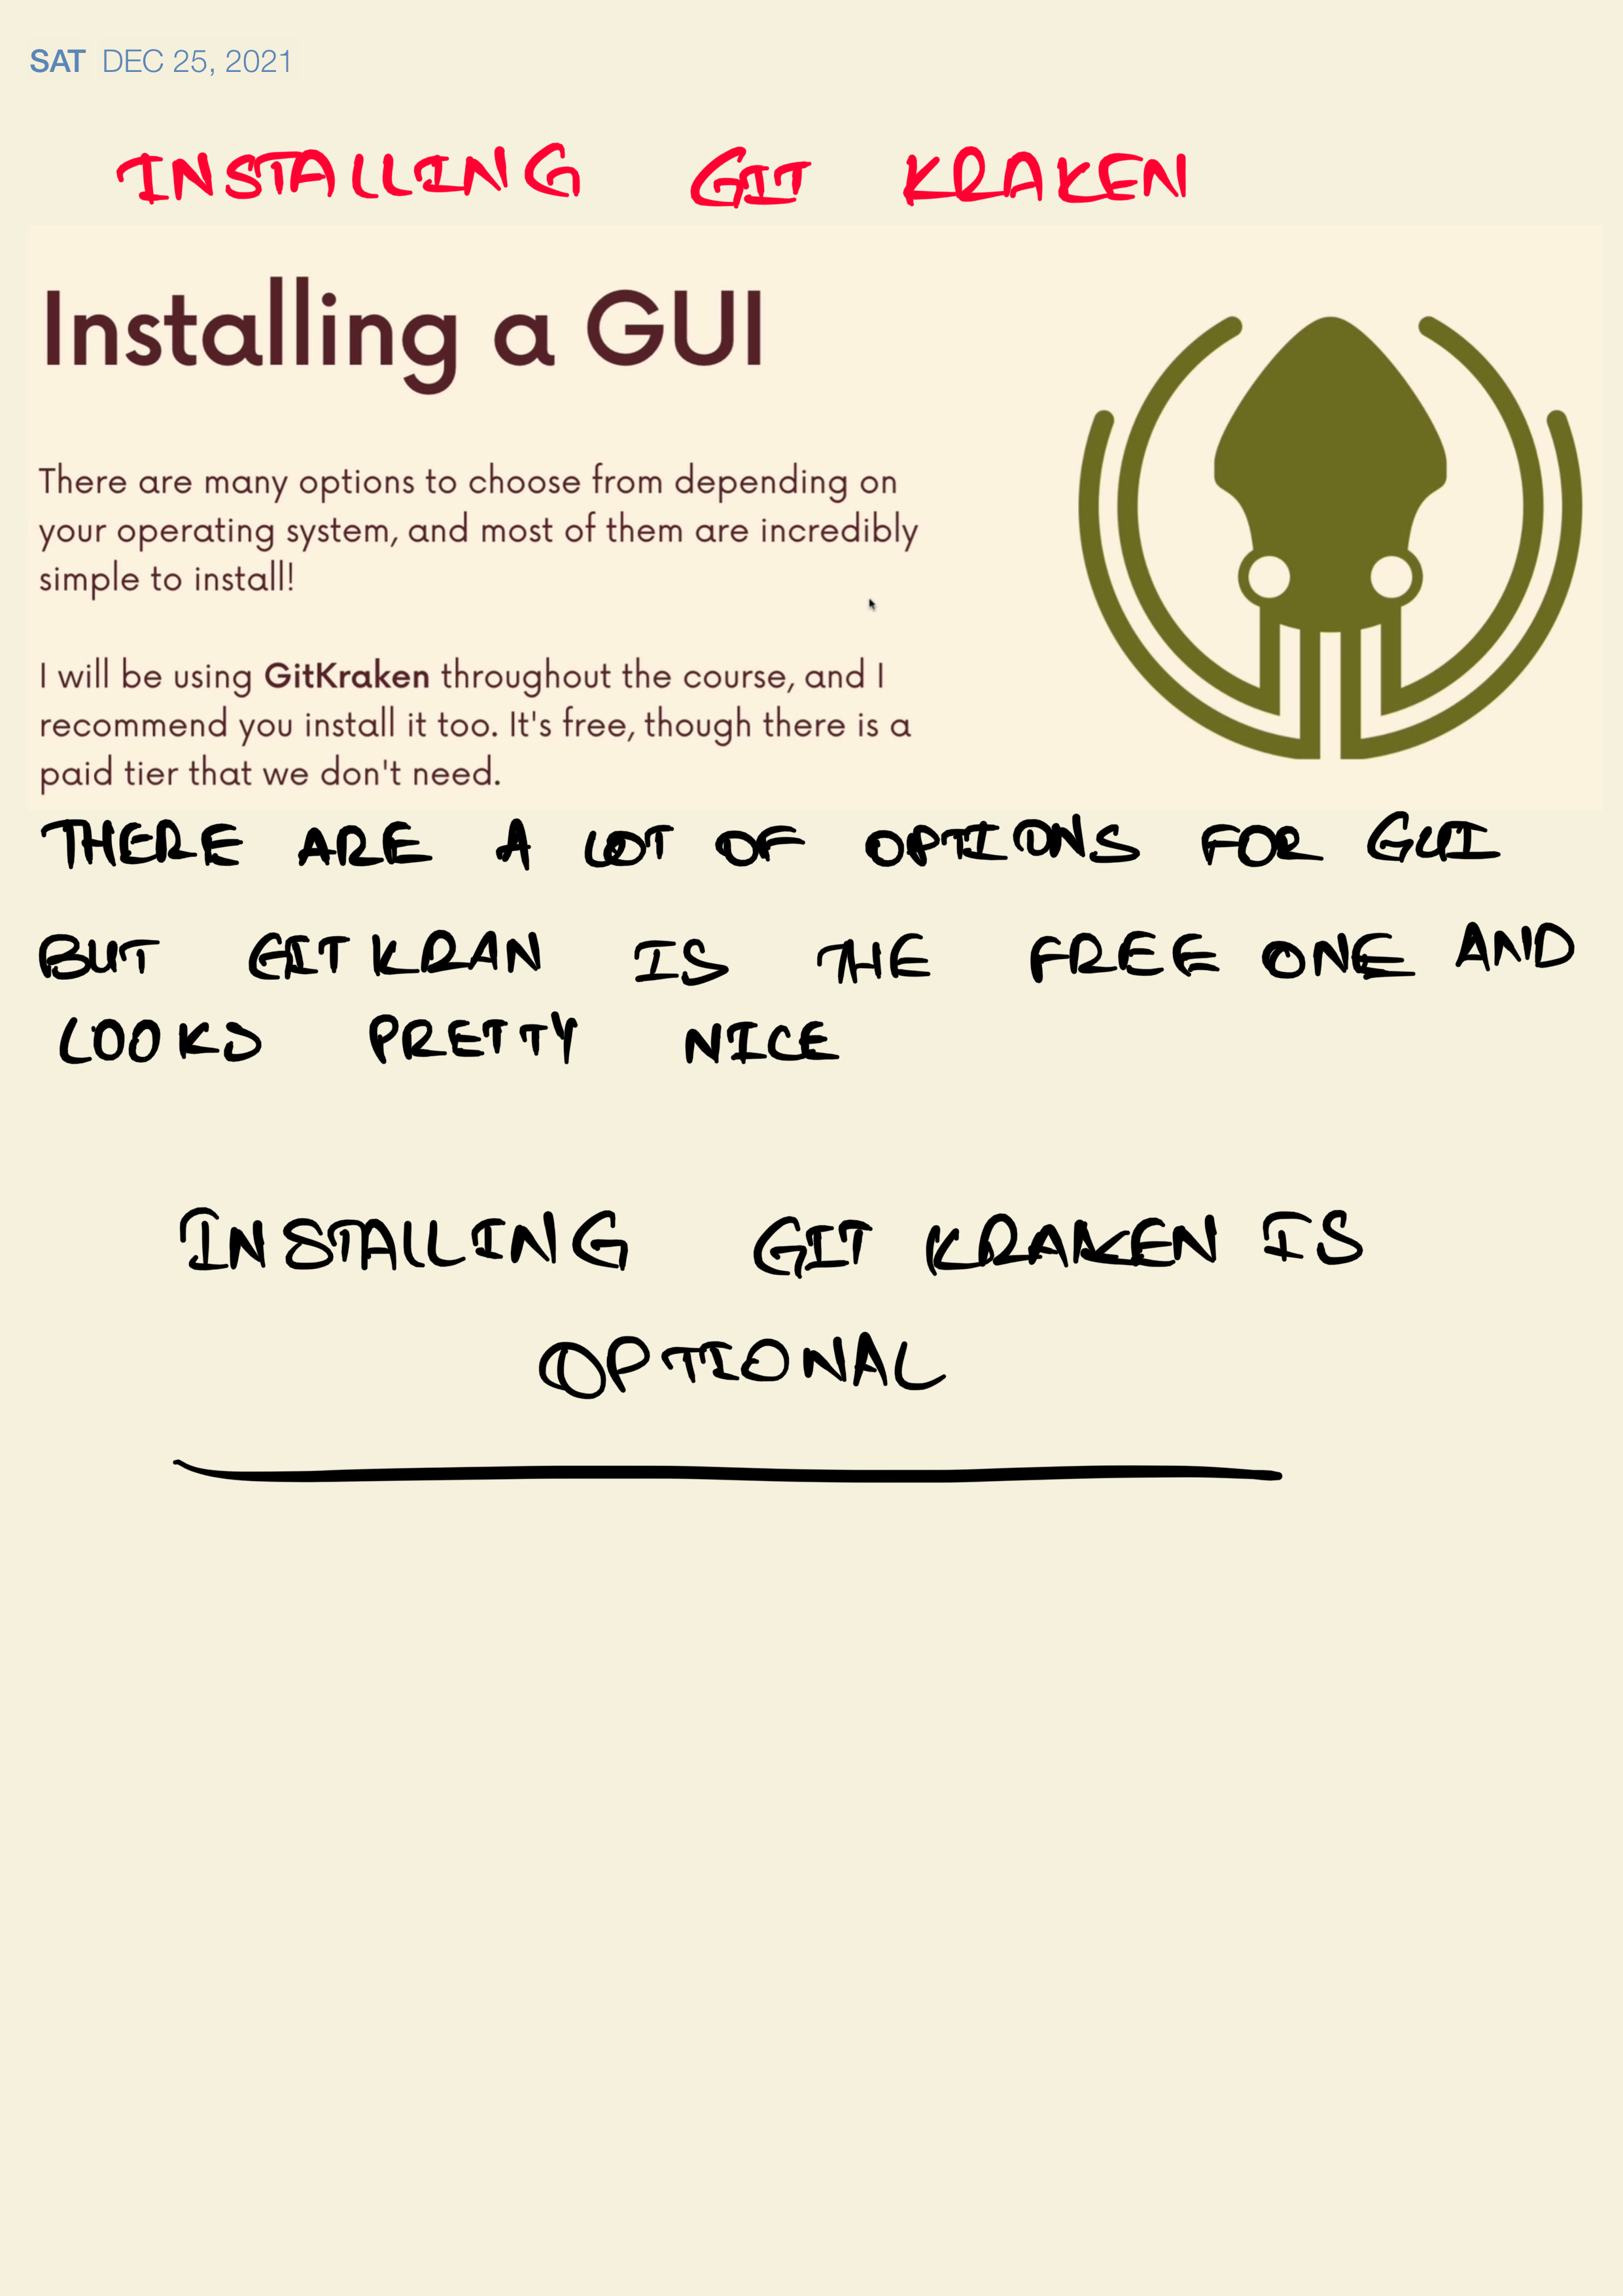 SAT DEC 25, 2021
INSTALLING GIT KRAKEN
Installing a GUI
There are many options to choose from depending on
your operating system, and most of them are incredibly
simple to install!
I will be using GitKraken throughout the course, and I
recommend you install it too. It's free, though there is a
paid tier that we don't need.
THERE ARE A LOT OF OPTIONS FOR GUI
BUT GITKRAN IS THE FREE ONE AND
LOOKS PRETTY NICE
INSTALLING GIT KRAKEN IS
OPTIONAL